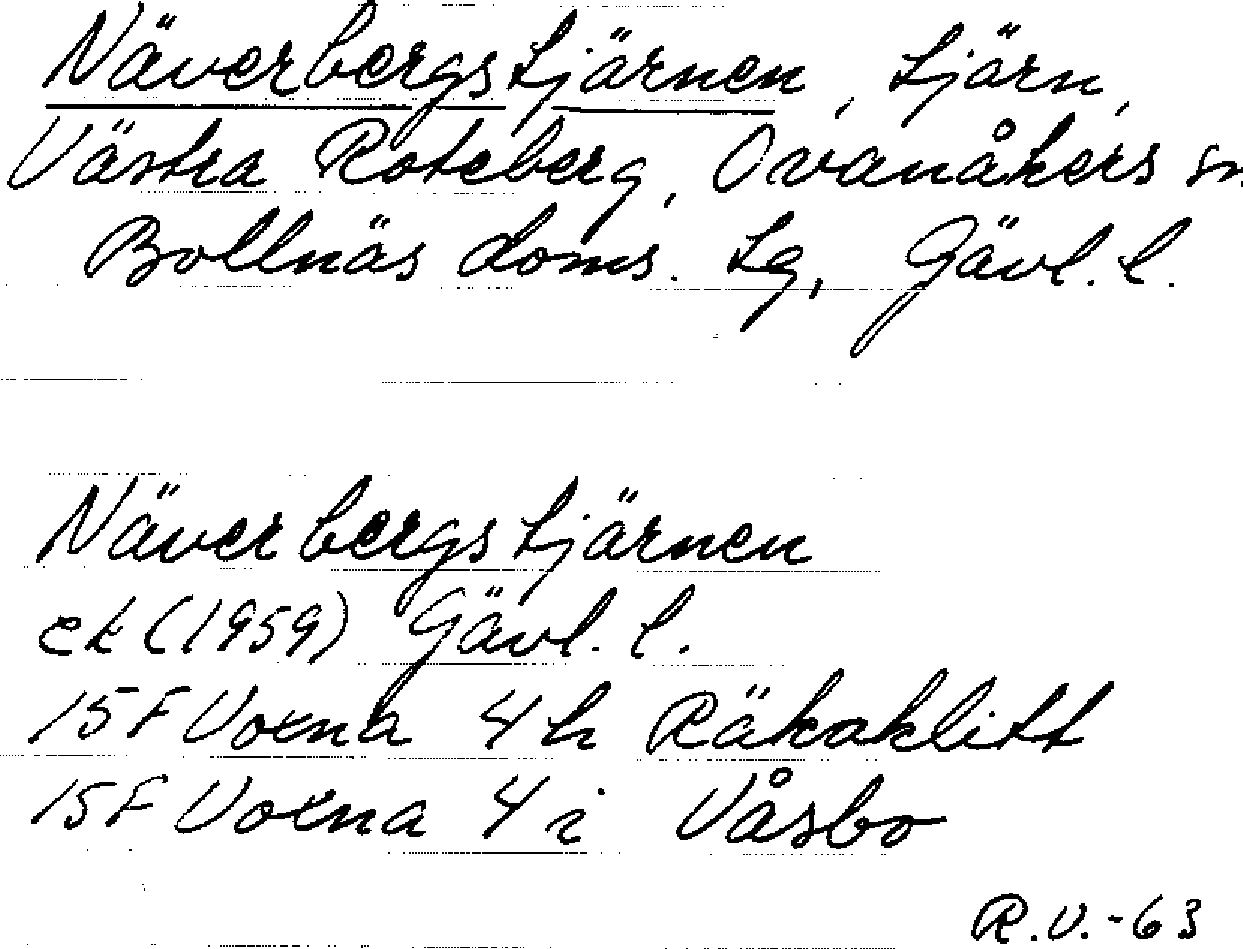 Näverbergstjärnen, tjärn,
Västra Roteberg, Ovanåkers sn.
Bollnäs doms. tg, Gävl. l.
Näverbergstjärnen
ek (1959) Gävl. l.
15F Voxna 4h Räkaklitt
15F Voxna 4i Våsbo
R.V.-63